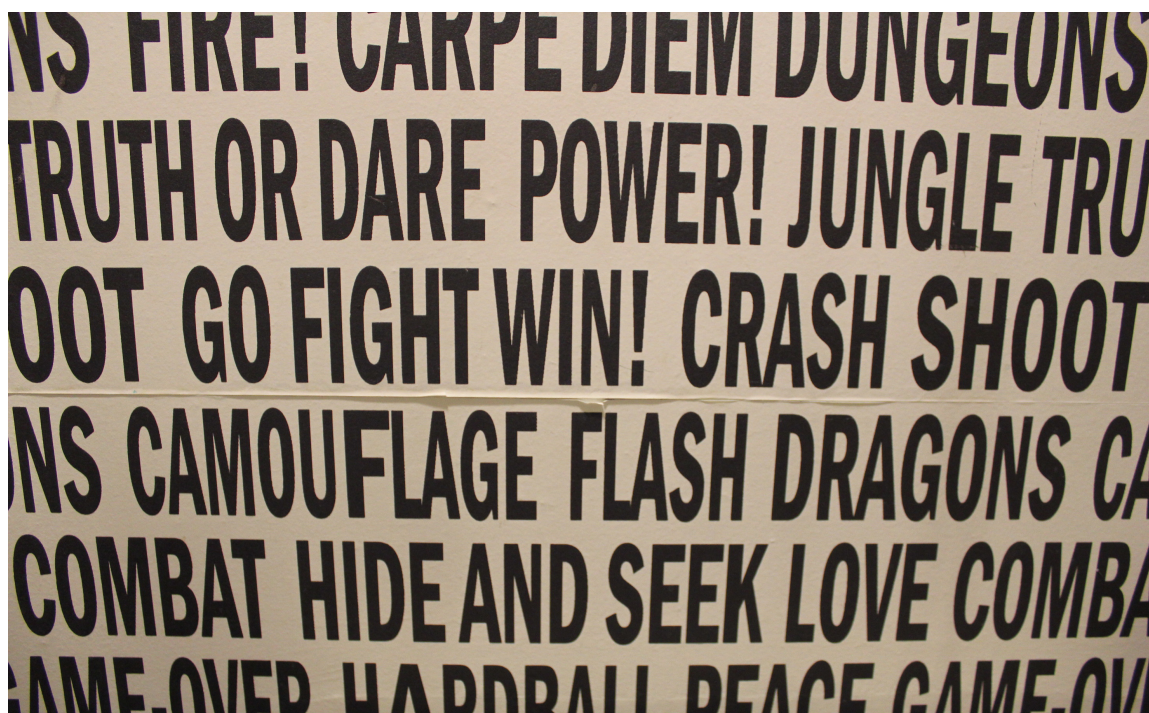 NS FIRE! CARPE DIEM DUNGEONS
TRUTH OR DARE POWER! JUNGLE TRU
OOT GO FIGHT WIN! CRASH SHOOT
ONS CAMOUFLAGE FLASH DRAGONS CA
COMBAT HIDE AND SEEK LOVE COMBA
GAME-OVER HARDBALL PEACE GAME-OV